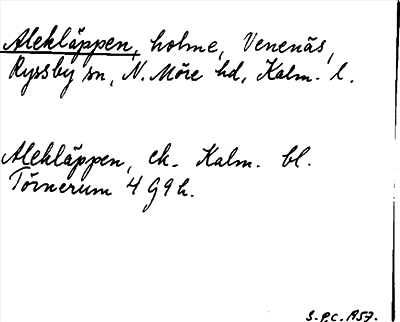 Alekläppen, holme, Venenäs,
Ryssby sn, N. Möre hd, Kalm. l.
Alekläppen, ek. Kalm. bl.
Törnerum 4 G9h.
S.P.C. 1957.